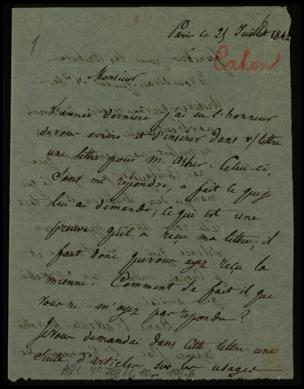 1
Paris le 25 Juillet 1842
Cahen
Monsieur
L'année dernière j'ai eu l'honneur
de vous écrire et d'insérer dans v/lettre
une lettre pour M. Asher. Celui-ci,
sans me répondre, a fait ce que je
lui ai demandé; ce qui est une
preuve qu'il a reçu ma lettre; il
faut donc que vous ayez reçu la
mienne. Comment se fait il que
vous ne m'ayez pas répondu?
Je vous demandai dans cette lettre une
suite d'articles sur les usages